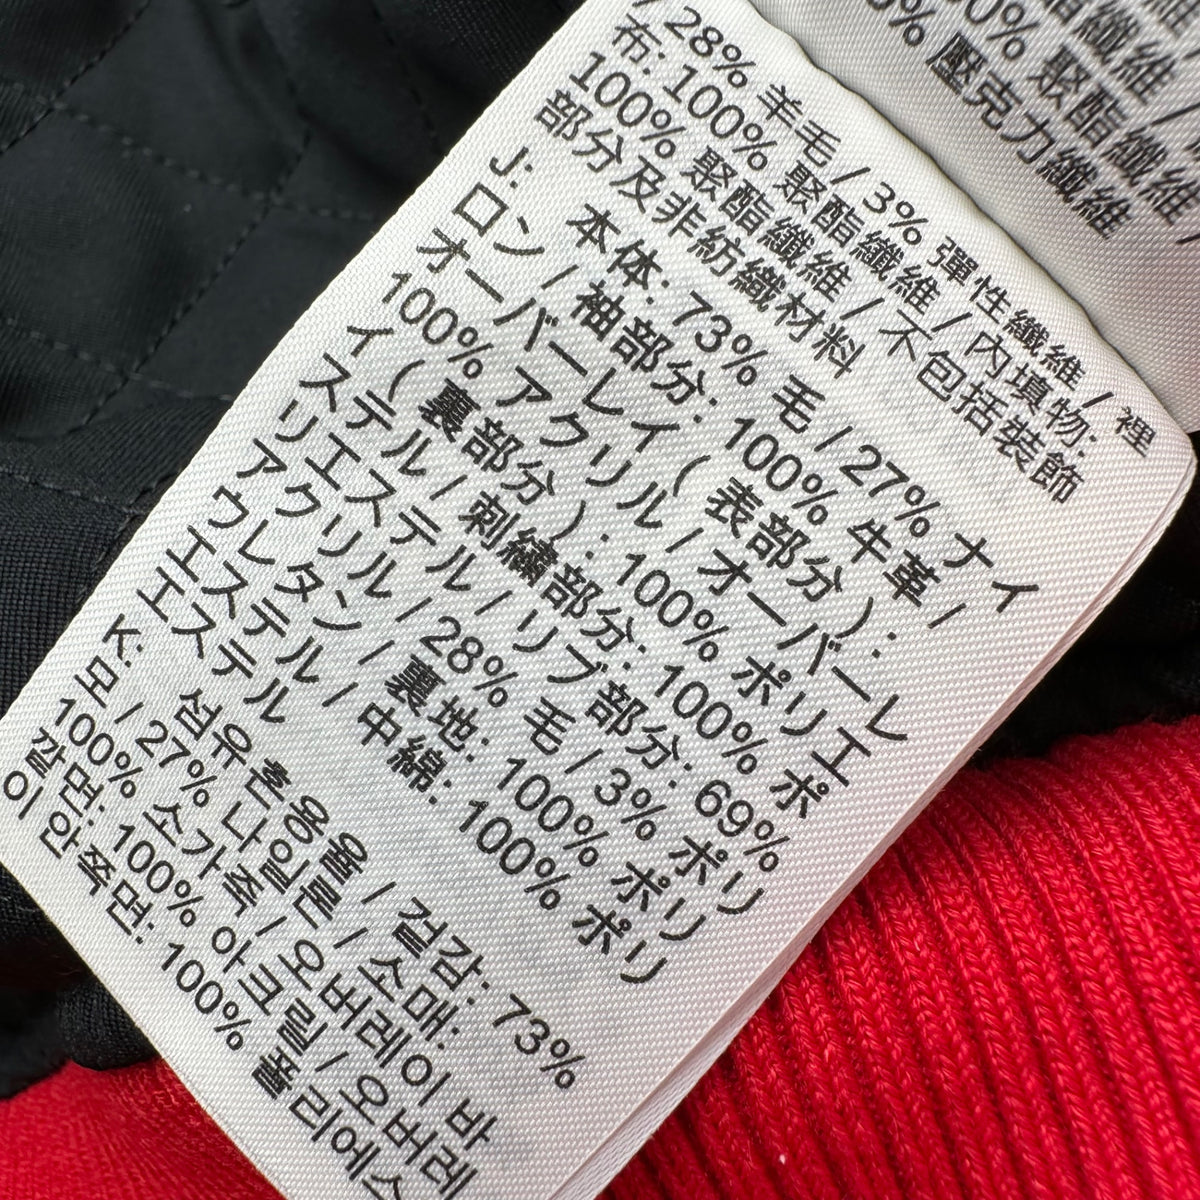 0% 聚酯纖維
% 壓克力纖維
/ 28% 羊毛 / 3% 彈性纖維 / 裡
布: 100% 聚酯纖維 / 內填物:
100% 聚酯纖維 / 不包括裝飾
部分及非紡織材料
J: 本体: 73% 毛 / 27% ナイ
ロン / 袖部分: 100% 牛革 /
オーバーレイ ( 表部分 ) :
100% アクリル / オーバーレ
イ ( 裏部分 ) : 100% ポリエ
ステル / 刺繍部分: 100% ポ
リエステル / リブ部分: 69%
アクリル / 28% 毛 / 3% ポリ
ウレタン / 裏地: 100% ポリ
エステル / 中綿: 100% ポリ
エステル
K: 섬유혼용율 / 겉감: 73%
모 / 27% 나일론 / 소매:
100% 소가죽 / 오버레이 바
깥면: 100% 아크릴 / 오버레
이 안쪽면: 100% 폴리에스